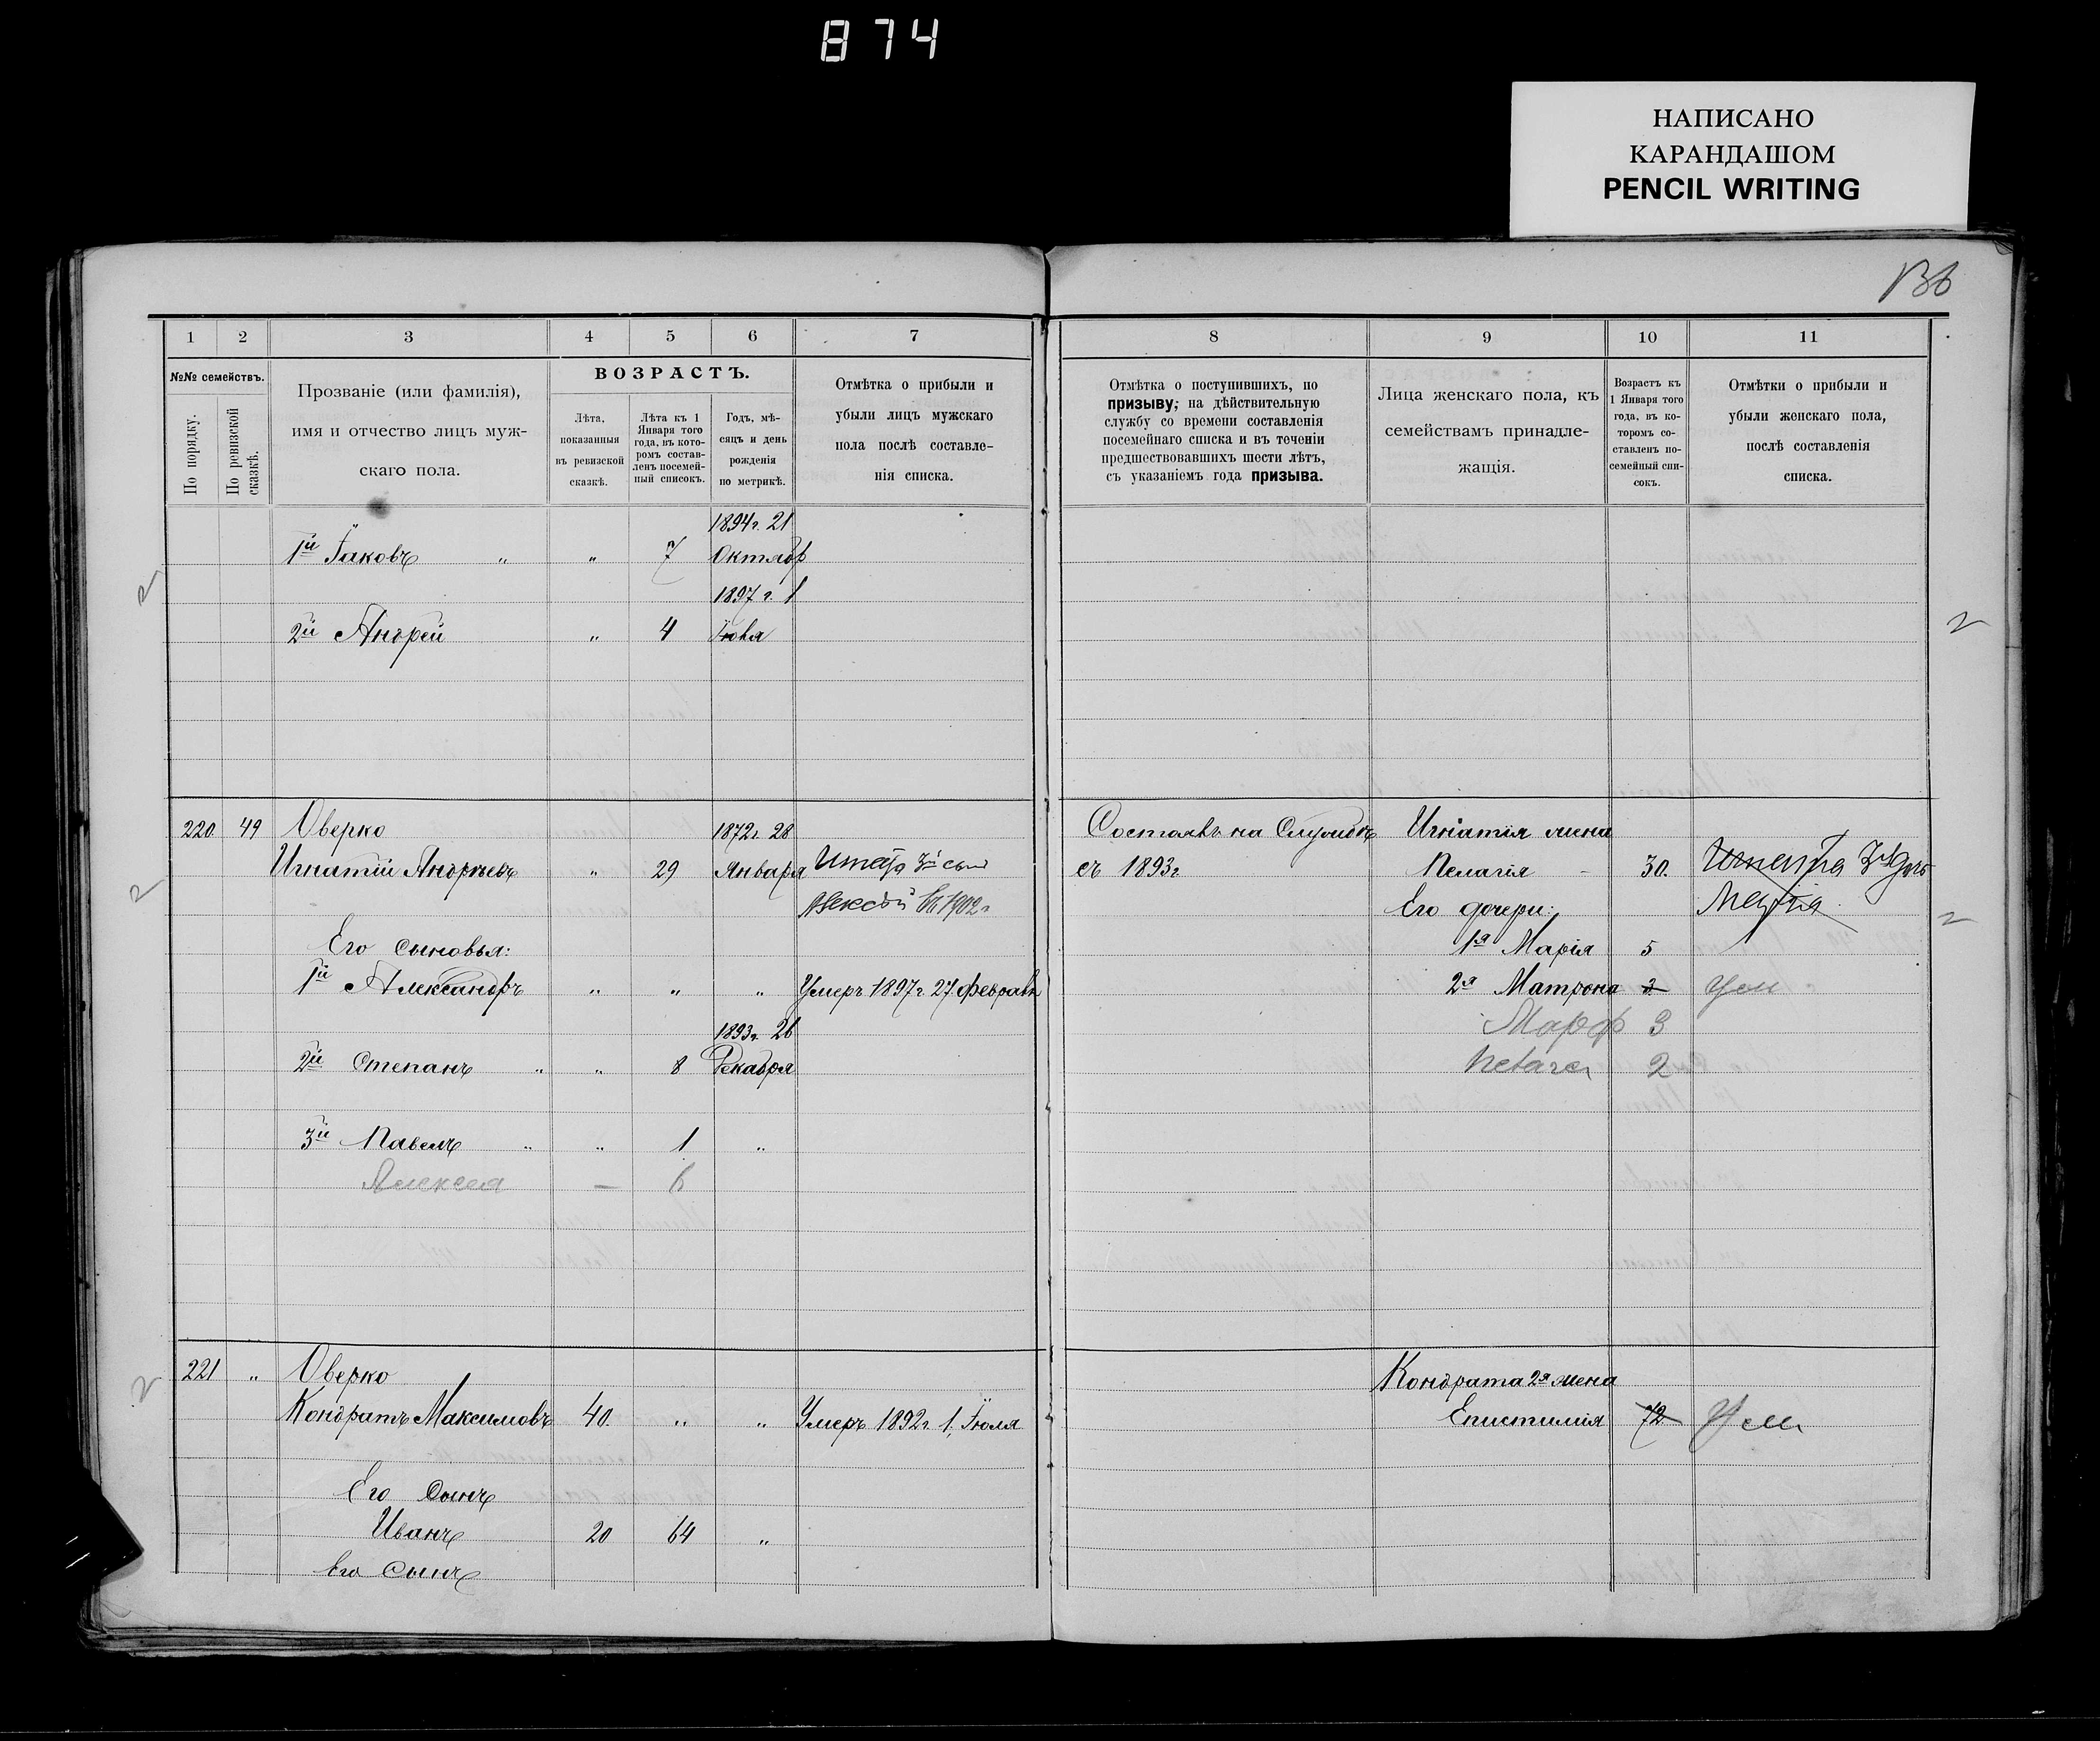 874
НАПИСАНО
КАРАНДАШОМ
PENCIL WRITING
136
1 2 3 4 5 6 7
№№ семействъ.
По порядку.
По ревизской сказкѣ.
Прозваніе (или фамилія),
имя и отчество лицъ муж-
скаго пола.
ВОЗРАСТЪ.
Лѣта,
показанныя
въ ревизской
сказкѣ.
Лѣта къ 1
Января того
года, въ кото-
ромъ состав-
ленъ посемей-
ный списокъ.
Годъ, мѣ-
сяцъ и день
рожденія
по метрикѣ.
Отмѣтка о прибыли и
убыли лицъ мужскаго
пола послѣ составле-
нія списка.
1894г. 21
1й Іаковъ " " 7 Октябр
1897 г. 1
2й Андрей " 4
220 49 Оверко 1872г. 28
Игнатій Андреевъ " 29 Января
1902г
Его сыновья:
1й Александръ " " " Умеръ 1897г 27 февраля
1893г. 26
2й Степанъ " " 8 Декабря
3й Павелъ " " 1 "
Алексей — 6
221 " Оверко
Кондратъ Максимовъ 40. " " Умеръ 1892г. 1, Іюля
Его Сынъ
Иванъ 20 64 "
Его Сынъ
8 9 10 11
Отмѣтка о поступившихъ, по
призыву; на дѣйствительную
службу со времени составленія
посемейнаго списка и въ теченіи
предшествовавшихъ шести лѣтъ,
съ указаніемъ года призыва.
Лица женскаго пола, къ
семействамъ принадле-
жащія.
Возрастъ къ
1 Января того
года, въ ко-
торомъ со-
ставленъ по-
семейный спи-
сокъ.
Отмѣтки о прибыли и
убыли женскаго пола,
послѣ составленія
списка.
Состоявъ на Службѣ Игнатія жена
съ 1893г Пелагія - 30.
Его дочери:
1я Марія 5
2я Матрона 2 Ум
Марф 3
2
Кондрата 2я жена
Епистимія 72 Ум